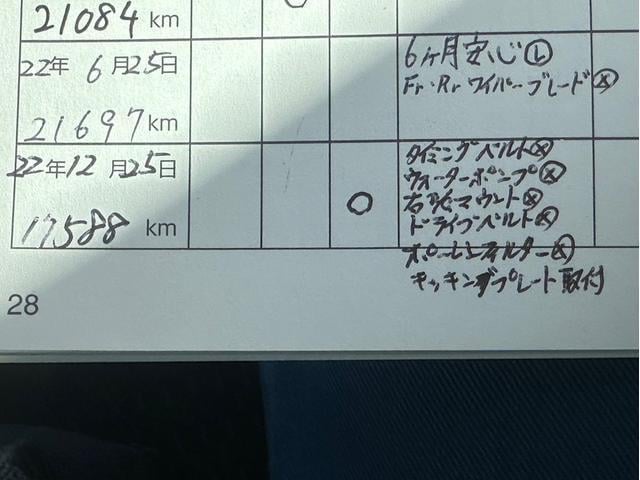 21084 km
22年 6月25日
6ヶ月安心Ⓛ
Fr・Rr ワイパーブレードⓧ
21697km
22年12月25日
タイミングベルトⓧ
ウォーターポンプⓧ
マウントⓧ
ドライブベルトⓧ
17588 km
フィルターⓧ
キッキングプレート取付
28